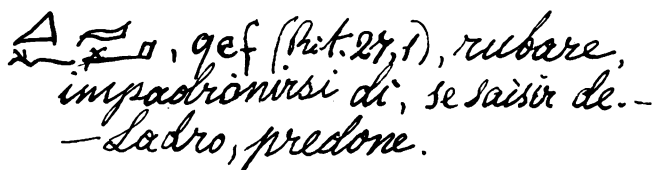 , qef (Rit. 27,1), rubare,
impadronirsi di, se saisir de.-
- Ladro, predone.